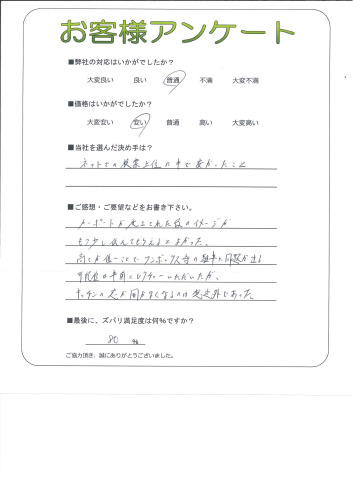 お客様アンケート
■弊社の対応はいかがでしたか?
大変良い 良い 普通 不満 大変不満
■価格はいかがでしたか?
大変安い 安い 普通 高い 大変高い
■当社を選んだ決め手は?
ネットでの検索上位の中で安かったこと
■ご感想・ご要望などをお書き下さい。
カーポートが 後のイメージが
もう少し伝えてもらえるとよかった。
高さが低いことで 車に問題が出る
可能性は事前にレクチャーいただいたが、
が開かなくなるのは想定外であった。
■最後に、ズバリ満足度は何%ですか?
80 %
ご協力頂き、誠にありがとうございました。